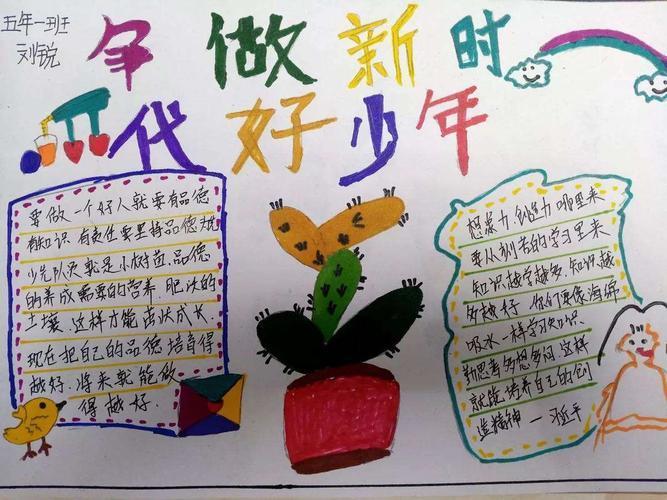 五年一班
刘锐
争做新时
代好少年
要做一个好人就要有品德
有知识 有责任要坚持品德
少先队员就是小树苗.品德
的养成需要的营养 肥沃的
土壤.这样才能茁壮成长.
现在把自己的品德培育得
越好.将来就能做
得越好.
想象力.创造力哪里来
要从刻苦的学习里来
知识越学越多.知识越
多越好 你们要像海绵
吸水一样学习知识.
勤思考多想多问 这样
就能培养自己的创
造精神 一 近平